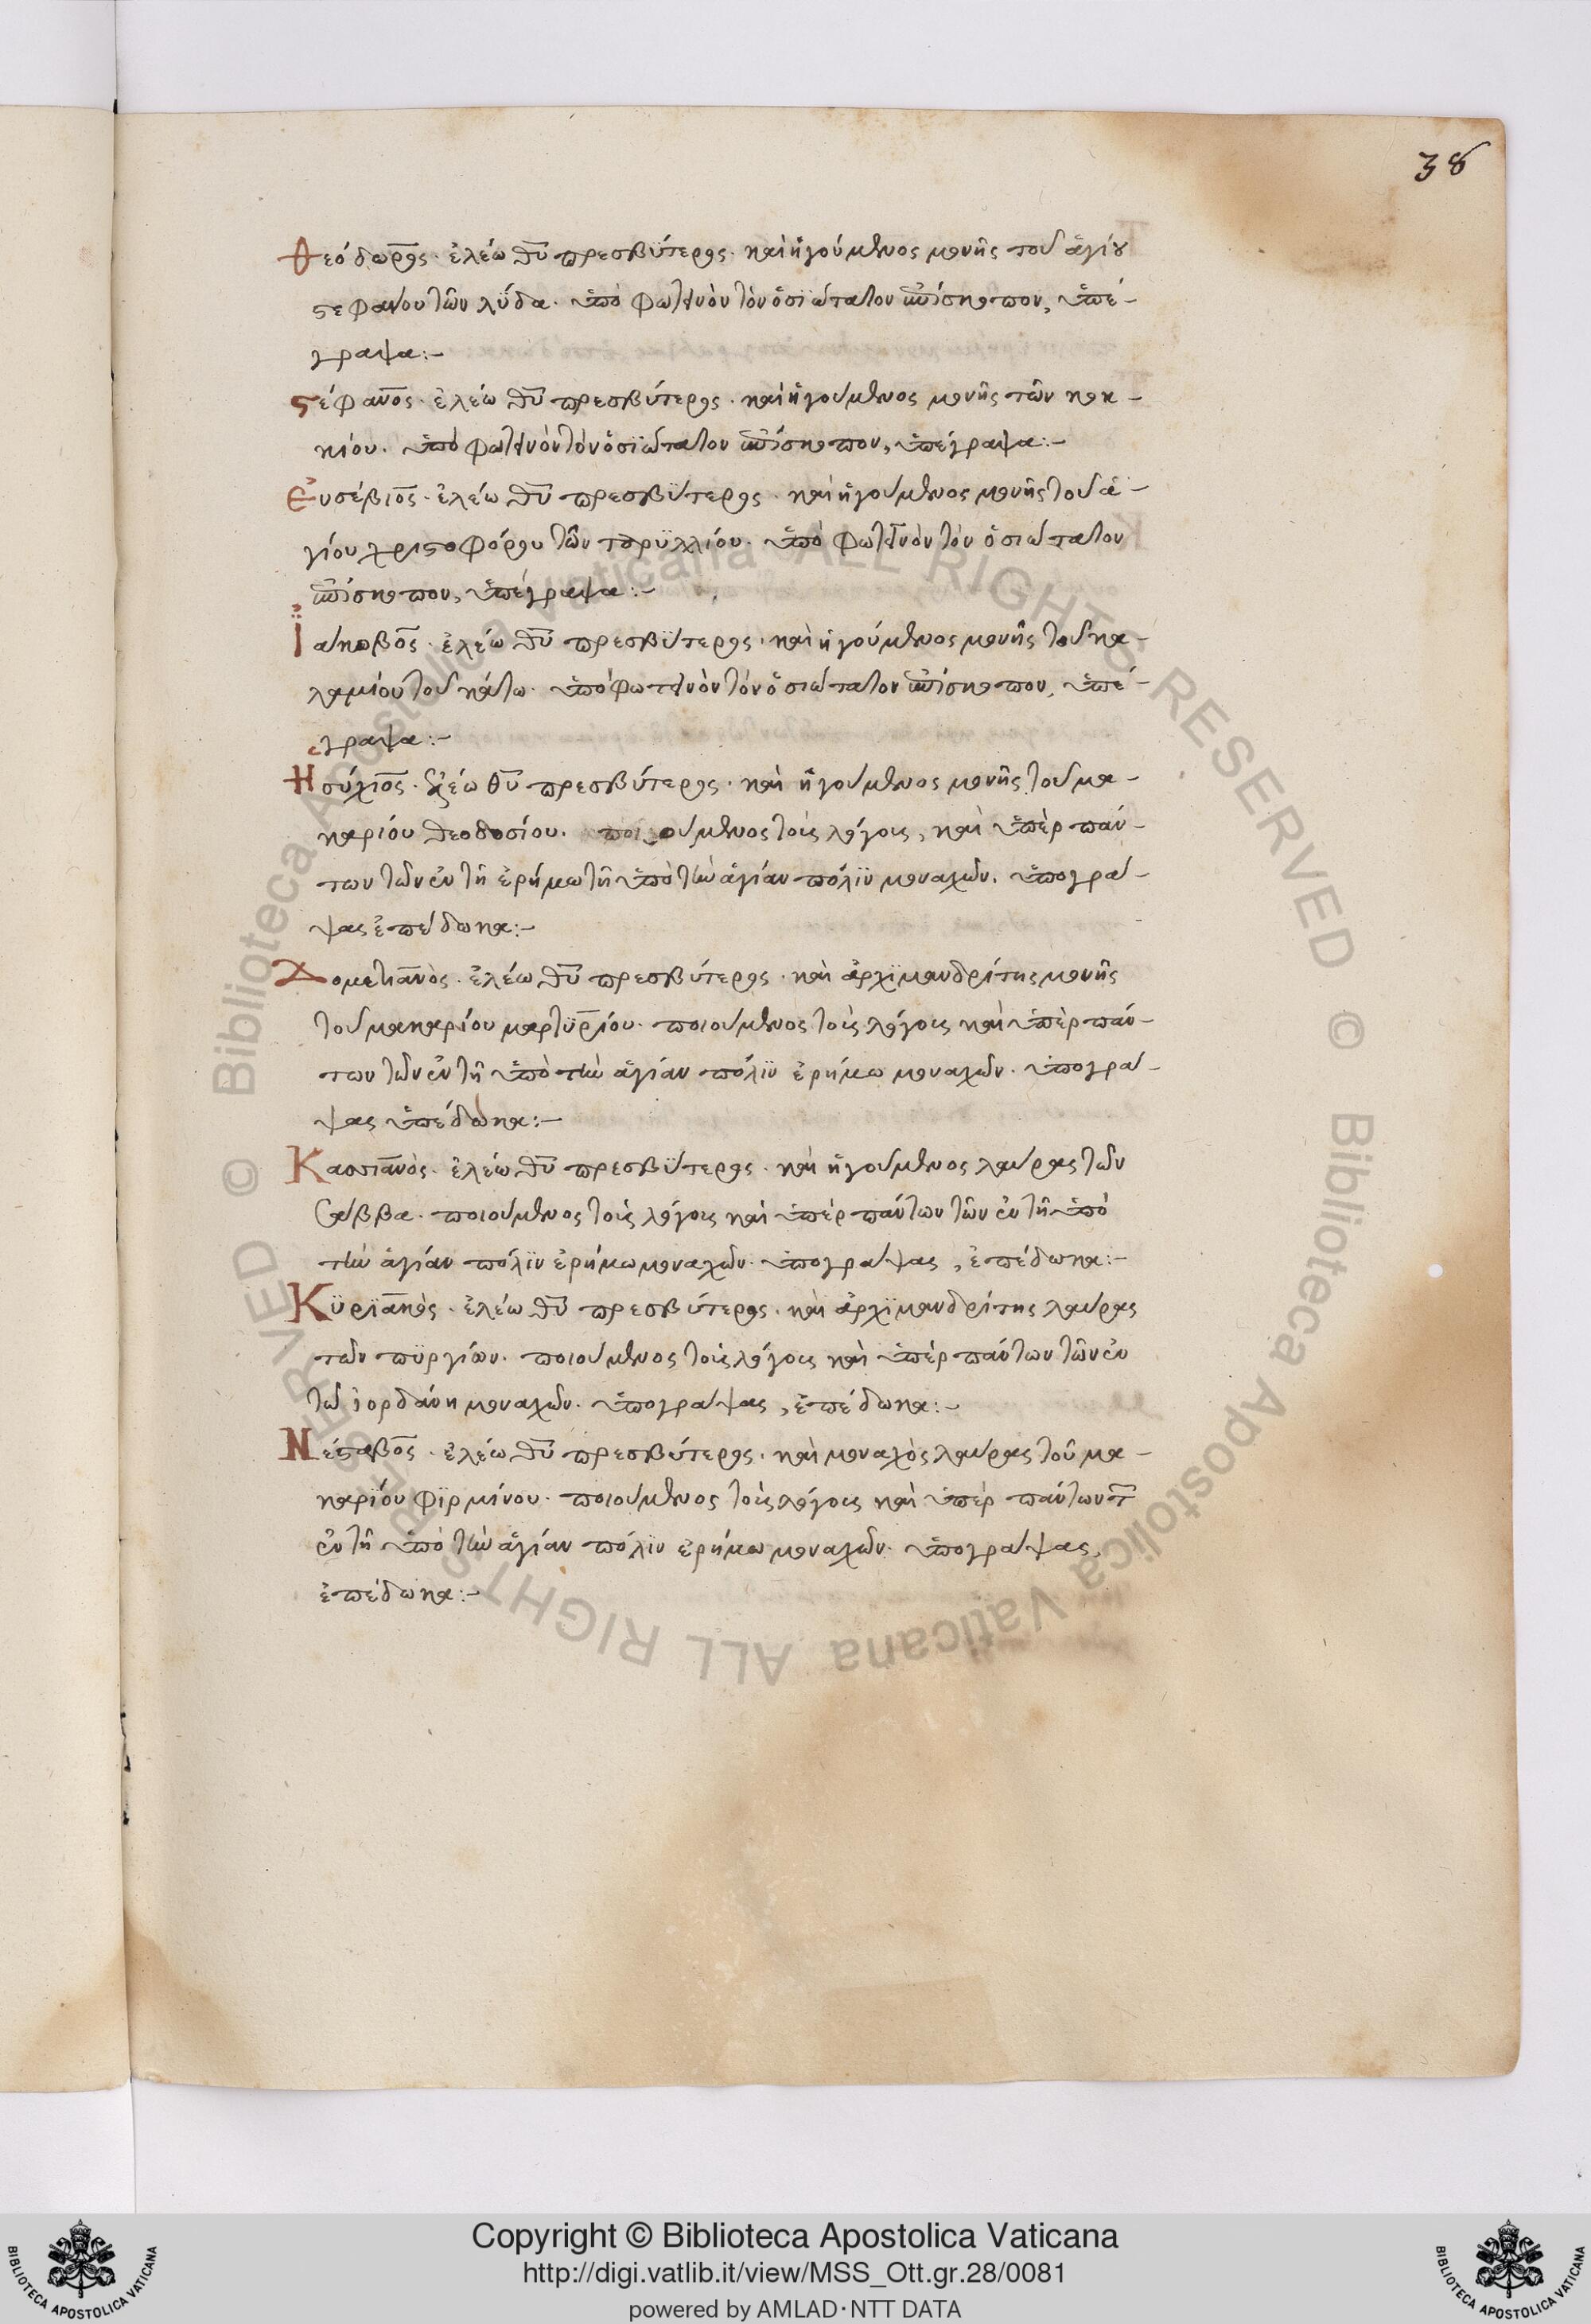 38
Θεόδωρος· ἐλέω θ̅υ̅ πρεσβϋτερος· καὶ ἡγούμενος μονῆς τοῦ ἁγίου
στεφάνου τῶν λύδα· ὑπὸ φωτεινὸν τὸν ὁσϊώτατον ἐπίσκοπον, ὑπέ-
γραψα:-
Στέφανος· ἐλέω θ̅υ̅ πρεσβύτερος· καὶ ἡγούμενος μονῆς τῶν κοκ-
κίου· ὑπὸ φωτεινὸν τὸν ὁσϊώτατον ἐπίσκοπον, ὑπέγραψα:-
Εὐσέβιος· ἐλέω θ̅υ̅ πρεσβϋτερος· καὶ ἡγούμενος μονῆς τοῦ ἁ-
γίου χριστοφόρου τῶν τορϋλλίου· ὑπὸ φωτεινὸν τὸν ὁσιώτατον
ἐπίσκοπον, ὑπέγραψα:-
Ἰάκωβος· ἐλέω θ̅υ̅ πρεσβϋτερος· καὶ ἡγούμενος μονῆς τοῦ κα-
λαμίου τοῦ κάτω· ὑπὸ φωτεινὸν τὸν ὁσιώτατον ἐπίσκοπον, ὑπέ-
γραψα:-
Ἡσύχιος· ἐλέω θ̅υ̅ πρεσβύτερος· καὶ ἡγούμενος μονῆς τοῦ μα-
καρίου θεοδοσίου· ποιούμενος τοὺς λόγους, καὶ ὑπὲρ πάν-
των τῶν ἐν τῆ ἐρήμω τῆ ὑπὸ τὴν ἁγίαν πόλϊν μοναχῶν· ὑπογρά-
ψας ἐπέδωκα:-
Δομετιανὸς· ἐλέω θ̅υ̅ πρεσβύτερος· καὶ ἀρχϊμανδρίτης μονῆς
τοῦ μακαρίου μαρτϋρίου· ποιούμενος τοὺς λόγους καὶ ὑπὲρ πάν-
των τῶν ἐν τῆ ὑπὸ τὴν ἁγίαν πόλϊν ἐρήμω μοναχῶν· ὑπογρά-
ψας ὑπέδωκα:-
Κασσιανὸς· ἐλέω θ̅υ̅ πρεσβϋτερος· καὶ ἡγούμενος λαύρας τῶν
Σάββα· ποιούμενος τοὺς λόγους καὶ ὑπὲρ πάντων τῶν ἐν τῆ ὑπὸ
τὴν ἁγίαν πόλϊν ἐρήμω μοναχῶν· ὑπογράψας, ἐπέδωκα:-
Κϋρϊακὸς· ἐλέω θ̅υ̅ πρεσβύτερος· καὶ ἀρχϊμανδρίτης λαύρας
τῶν πϋργίων· ποιούμενος τοὺς λόγους καὶ ὑπὲρ πάντων τῶν ἐν
τῶ ἰορδάνη μοναχῶν· ὑπογράψας, ἐπέδωκα:-
Νέσταβος· ἐλέω θ̅υ̅ πρεσβύτερος· καὶ μοναχὸς λαύρας τοῦ μα-
καρϊου φϊρμίνου· ποιούμενος τοὺς λόγους καὶ ὑπὲρ πάντων τῶν
ἐν τῆ ὑπὸ τὴν ἁγίαν πόλϊν ἐρήμω μοναχῶν· ὑπογράψας,
ἐπέδωκα:-
© Biblioteca Apostolica Vaticana ALL RIGHTS RESERVED © Biblioteca Apostolica Vaticana ALL RIGHTS RESERVED
Copyright © Biblioteca Apostolica Vaticana
http://digi.vatlib.it/view/MSS_Ott.gr.28/0081
powered by AMLAD·NTT DATA
BIBLIOTECA APOSTOLICA VATICANA
BIBLIOTECA APOSTOLICA VATICANA